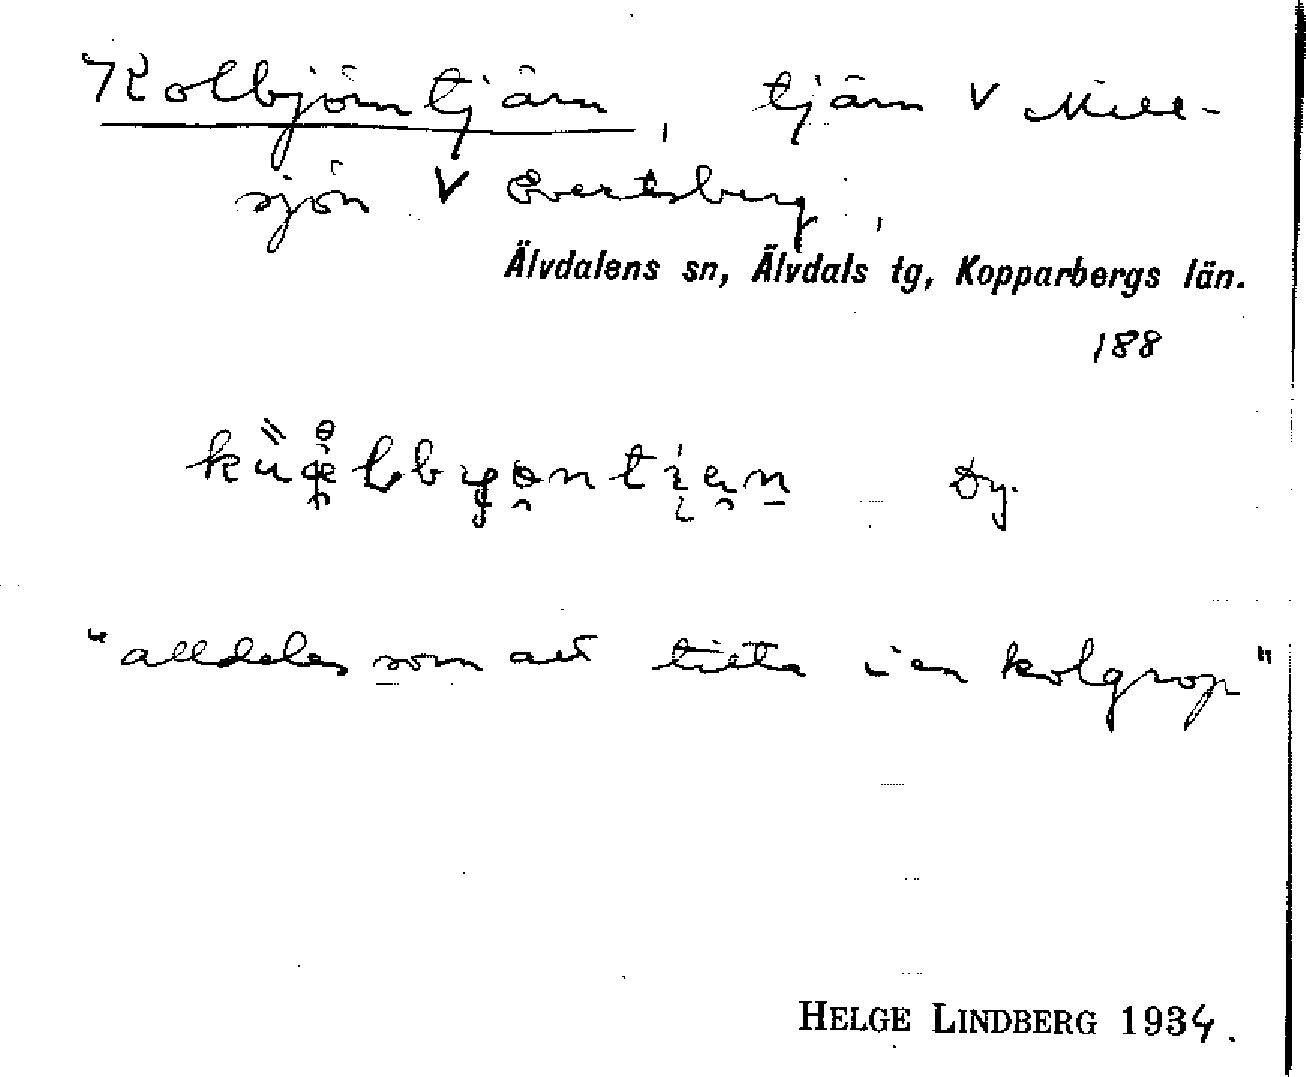 Kolbjörntjärn, tjärn V Mell-
sjön V Evertsberg,
Älvdalens sn, Älvdals tg, Kopparbergs län.
188
Dy.
"alldeles som att titta i en kolgrop"
HELGE LINDBERG 1934.